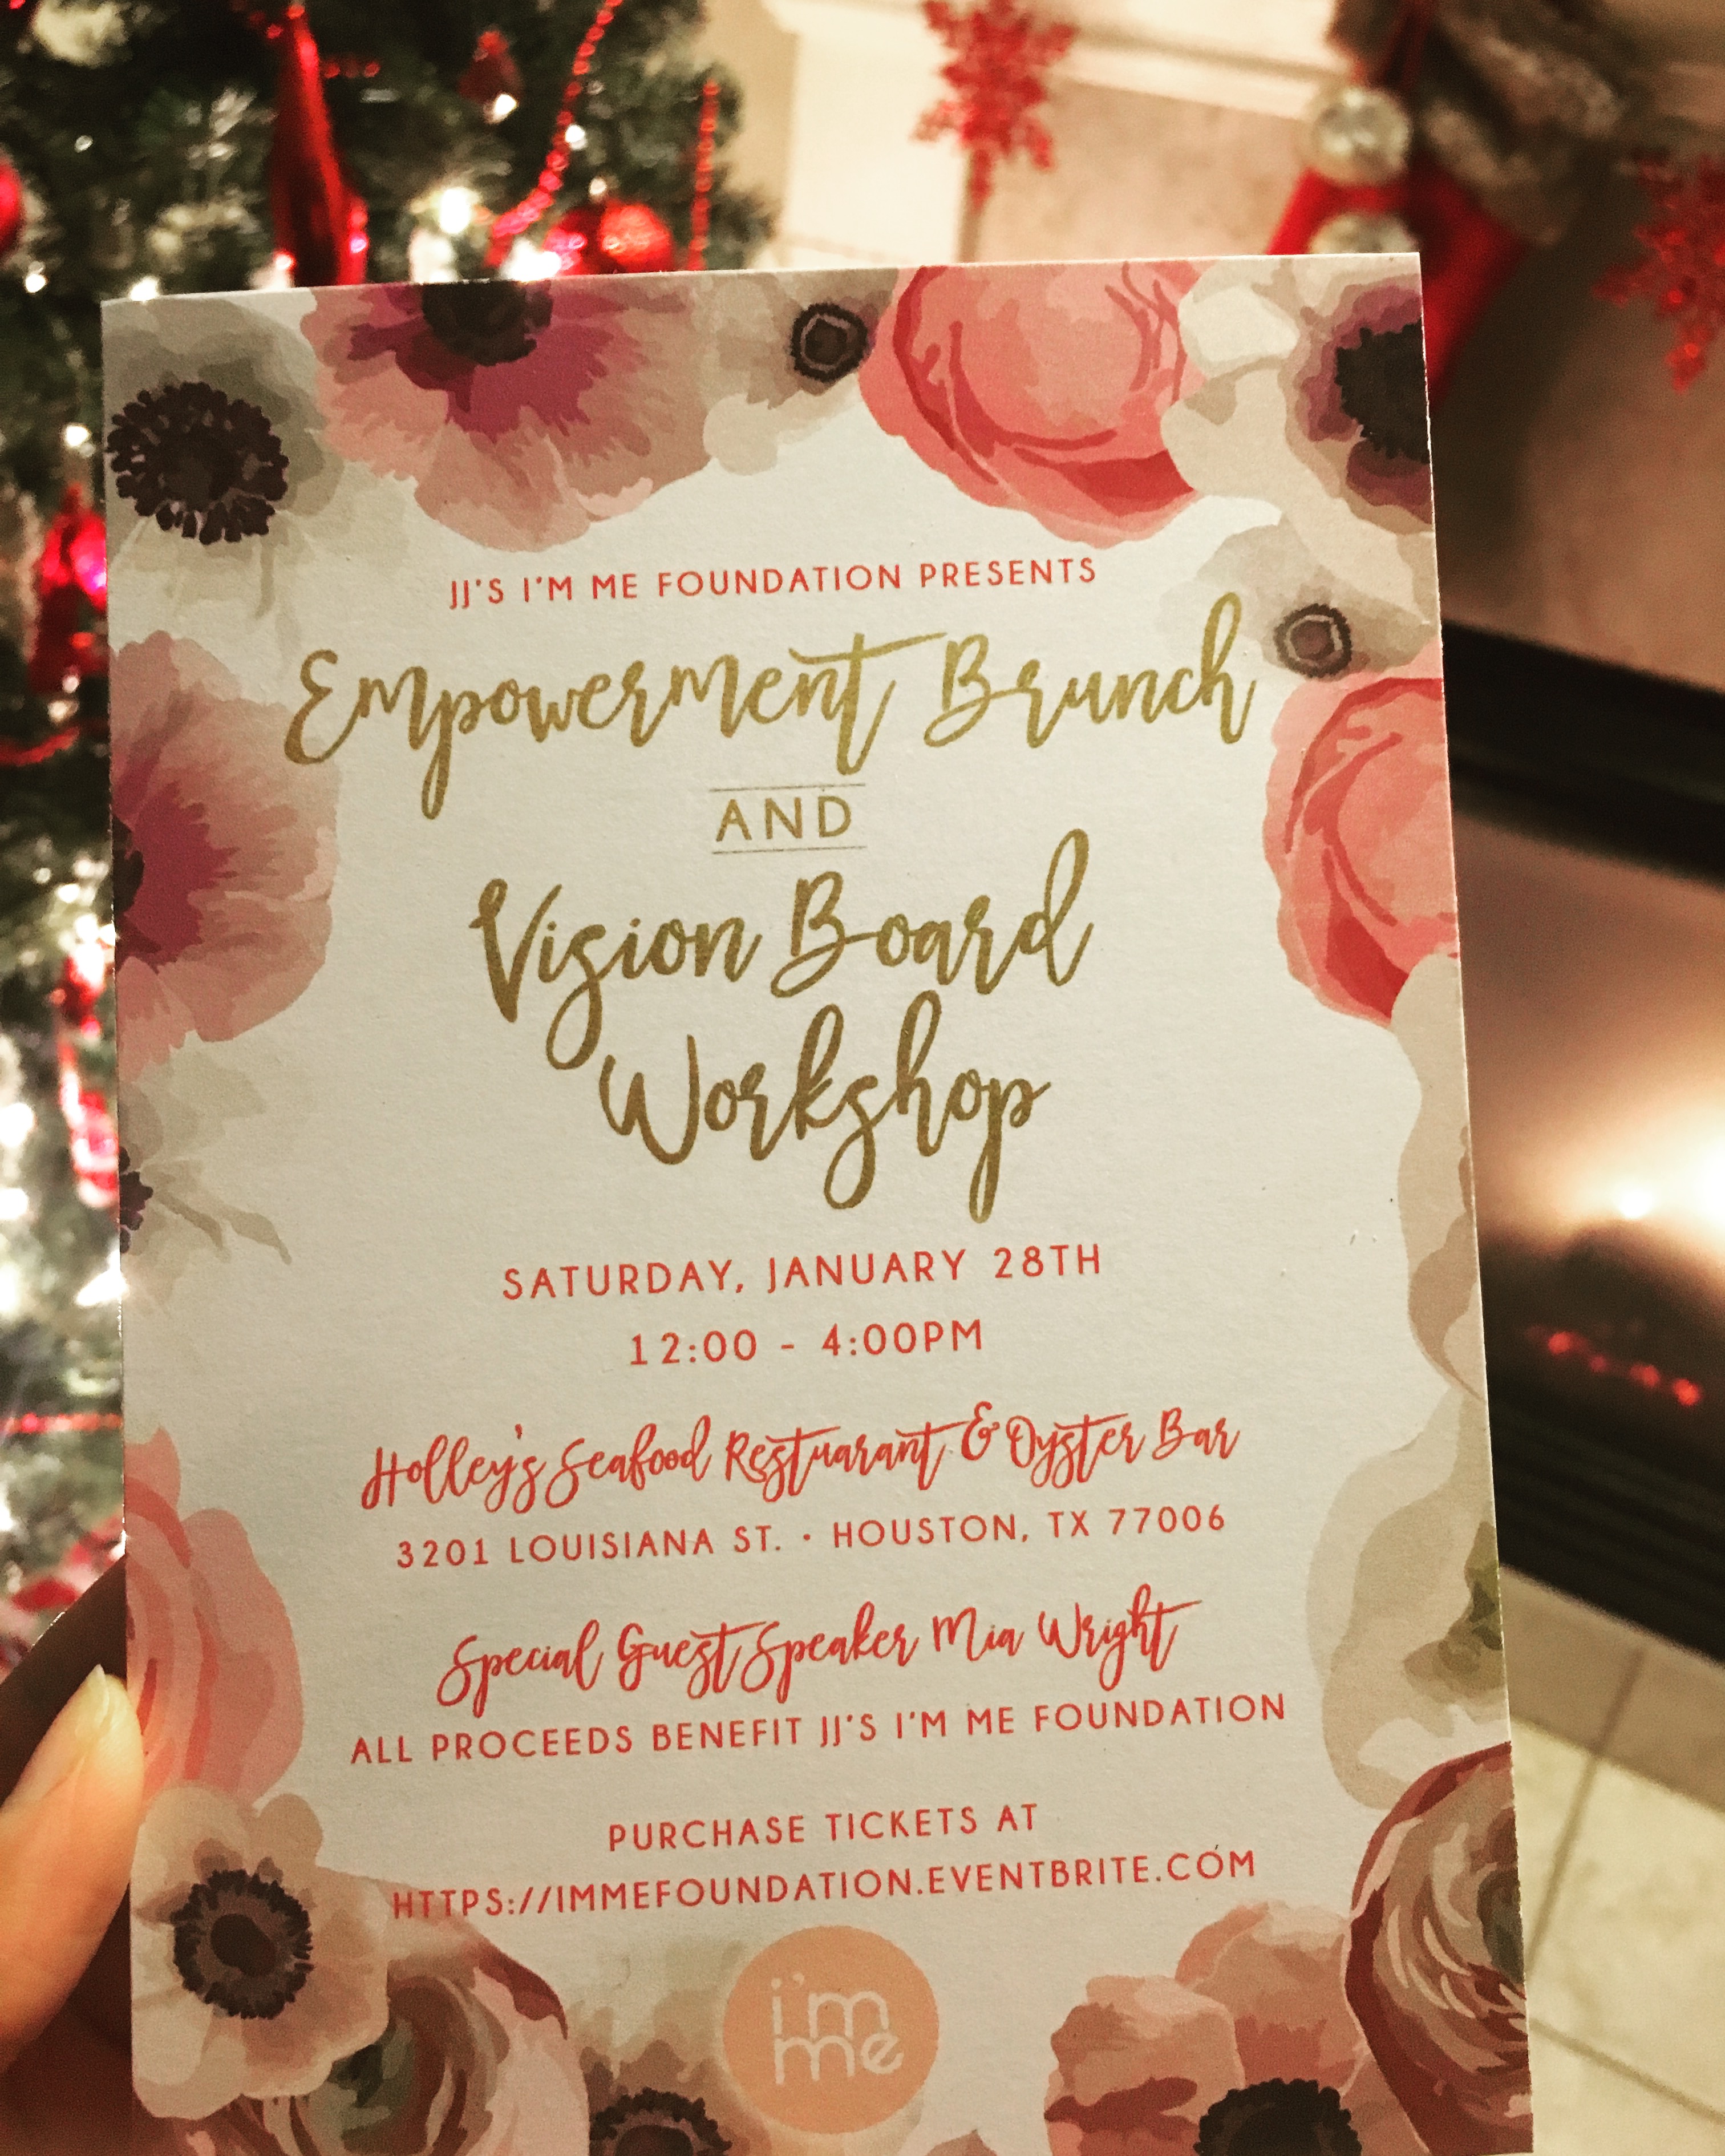 JJ'S I'M ME FOUNDATION PRESENTS
Empowerment Brunch
AND
Vision Board
Workshop
SATURDAY, JANUARY 28TH
12:00 - 4:00PM
Holley's Seafood Restuarant & Oyster Bar
3201 LOUISIANA ST. • HOUSTON, TX 77006
Special Guest Speaker Mia Wright
ALL PROCEEDS BENEFIT JJ'S I'M ME FOUNDATION
PURCHASE TICKETS AT
HTTPS://IMMEFOUNDATION.EVENTBRITE.COM
i'm
me